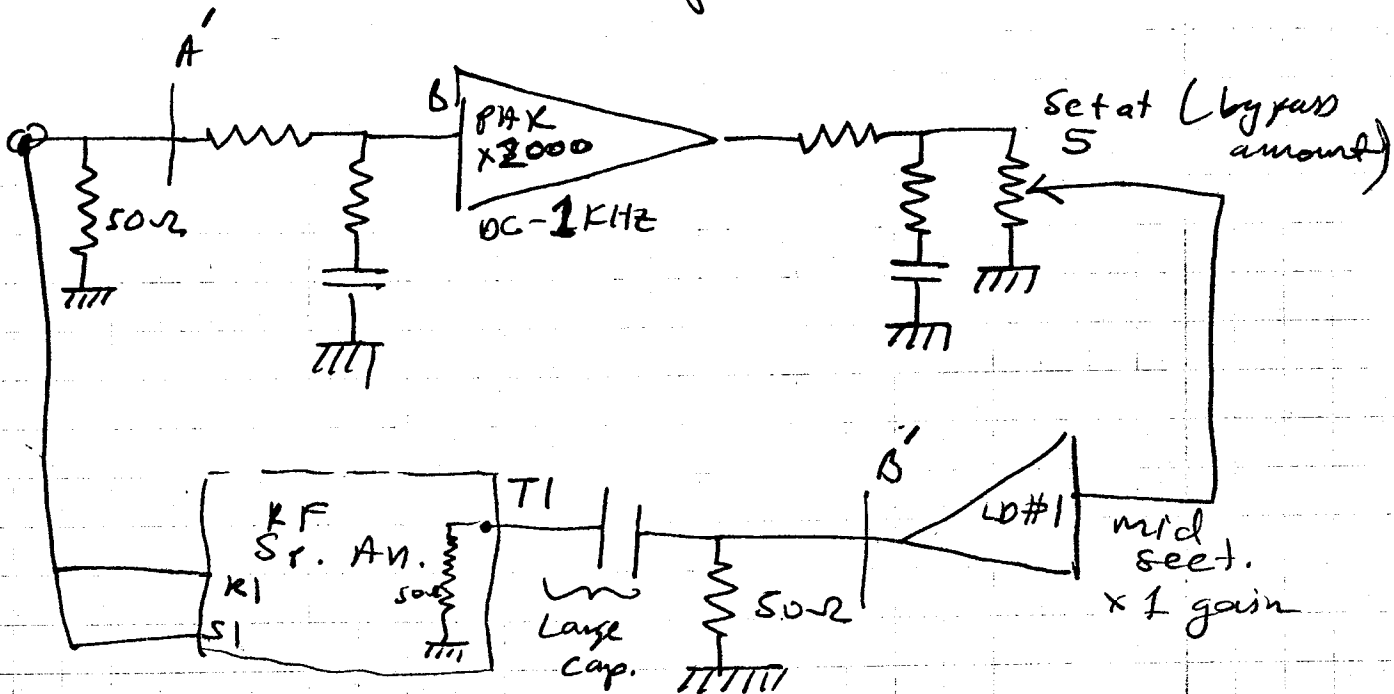 A'
B
PAR
x2000
DC-1KHz
50Ω
Set at (bypass
5 amount)
RF
Sp. An.
T1
R1
S1
50Ω
Large
cap.
50Ω
B'
LD#1
mid
sect.
x 1 gain